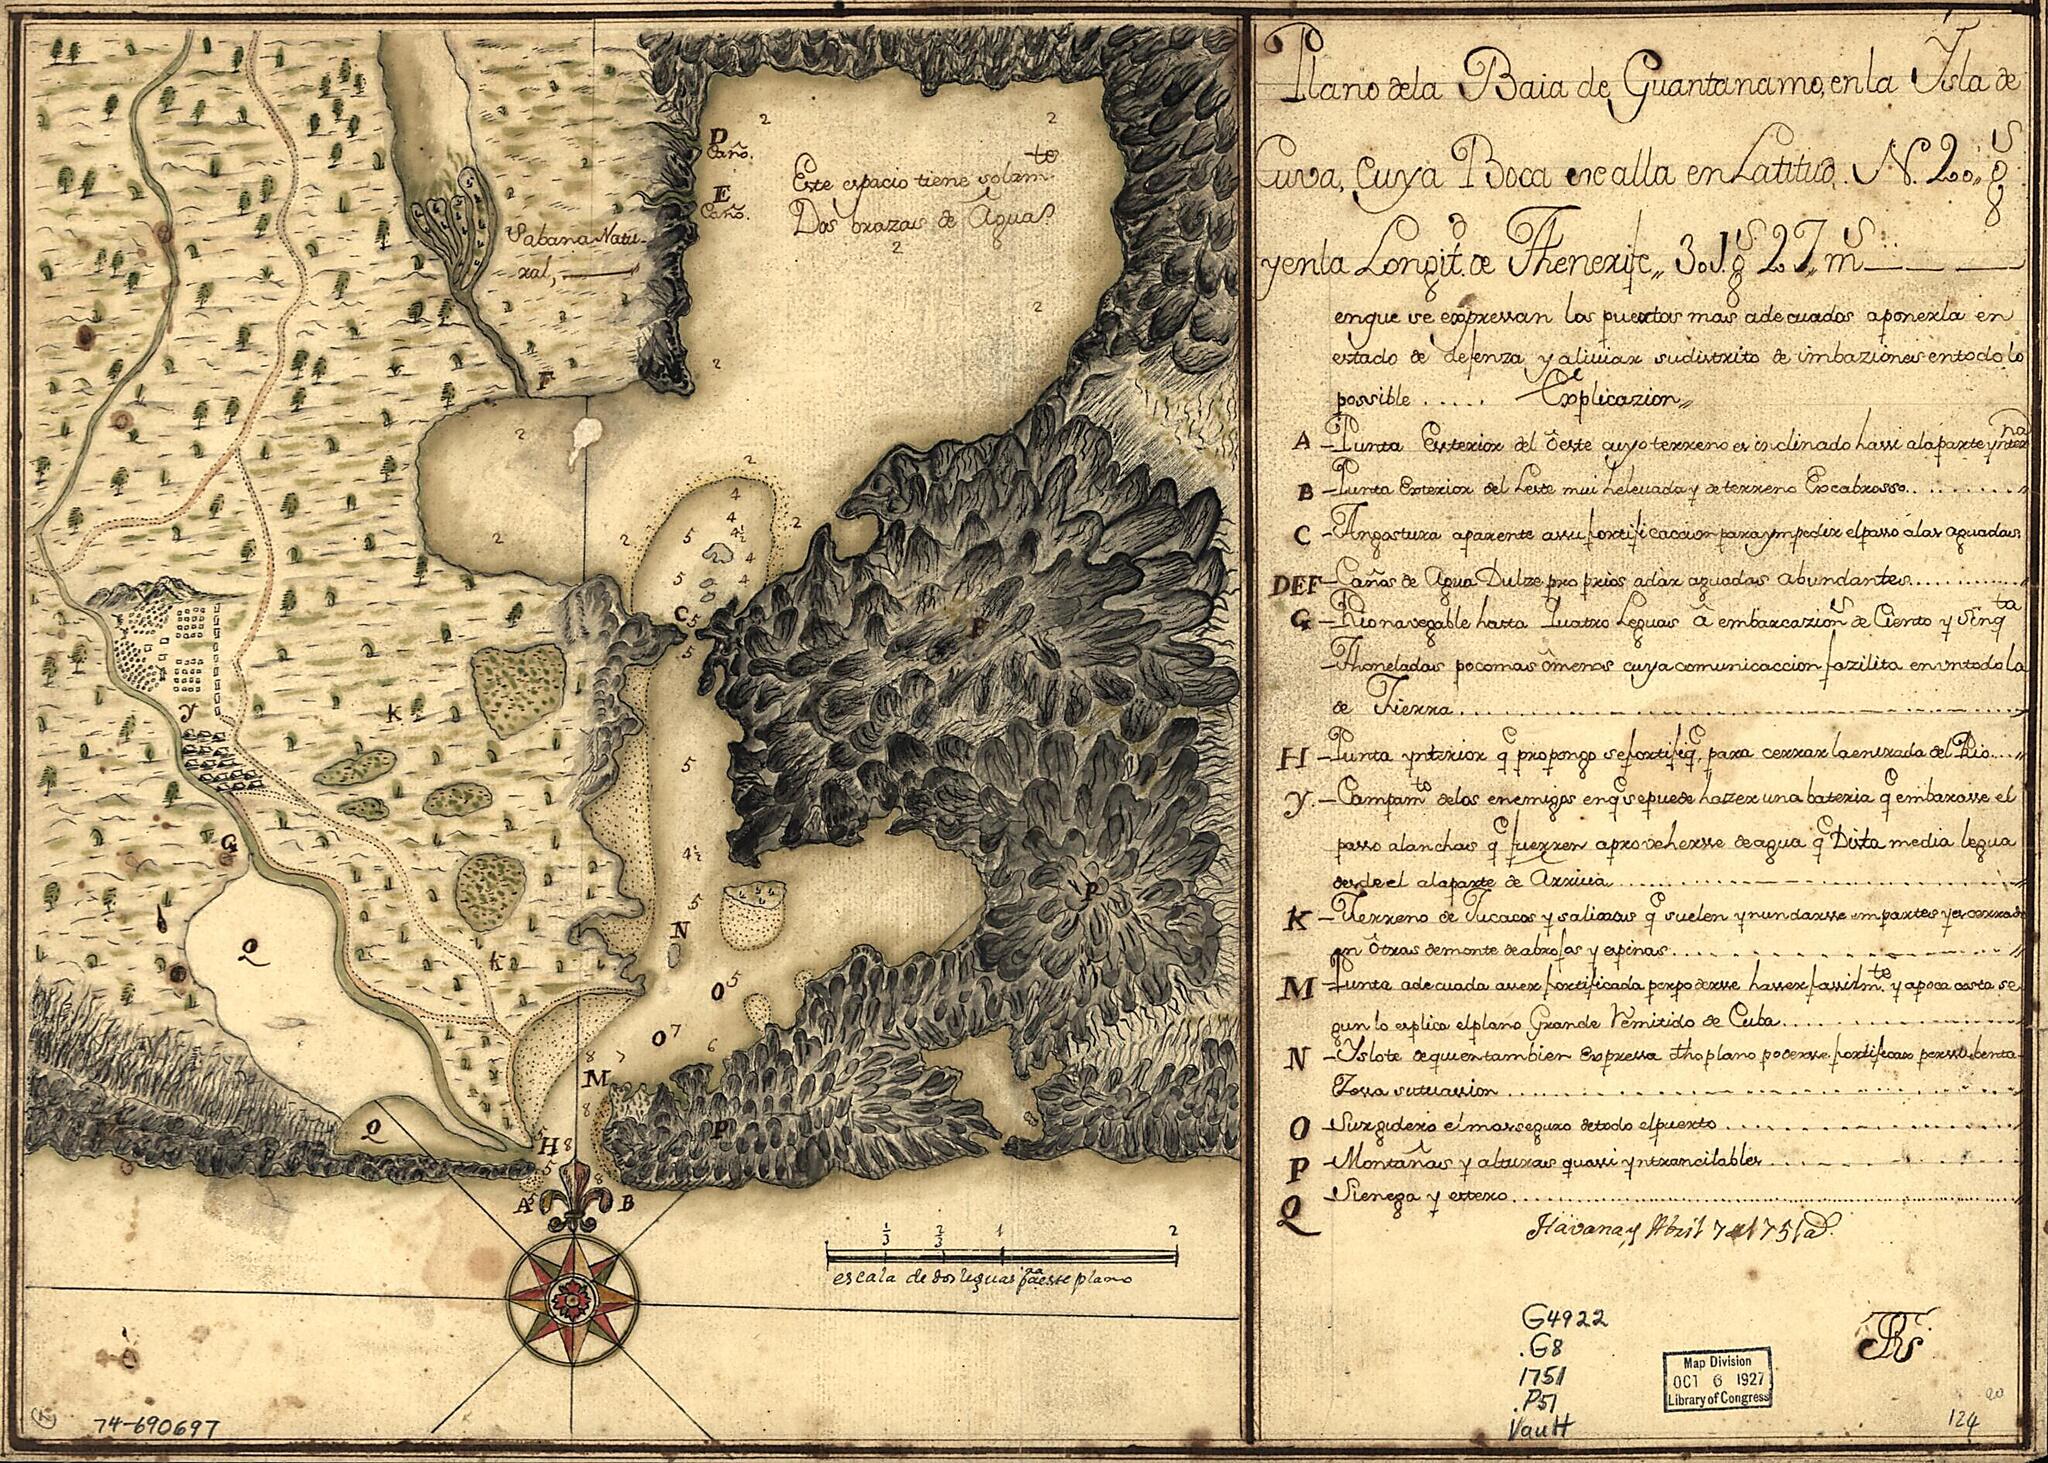 Plano dela Baia de Guantanamo, enla Ysla de
Cuva, Cuya Boca se alla en Latitud. N. 20,, gs
y enla Longitd. de Thenerife,, 301 gs 27,, ms
en que se expressan los puertos mas adecuados a ponerla en
estado de defenza y aliviar su distrito de imbaziones en todo lo
possible ..... Explicazion,,
A - Punta Exterior del Oeste cuyo terreno es inclinado hassi ala parte ynterna
B - Punta Exterior del Leste mui helevada y de terreno Escabrosso
C - Angostura aparente assu fortificaccion para ympedir el passo álas aguadas
DEF - Caños de Agua Dulze proprios adar aguadas abundantes
G - Rio navegable hasta Quatro Leguas â embarcazions de Ciento y Sinqta
Thoneladas poco mas ômenos cuya comunicaccion fazilita en un todo la
de Tierra
H - Punta ynterior qe propongo se fortifqe para cerrar la entrada del Rio
Y. - Campamto de los enemigos en qe se puede hazer una bateria qe embarasse el
passo alanchas qe fuexen aprovehersse de agua qe Dista media legua
desde el ala parte de Arriva
K - Terreno de Yucacos y salinas qe suelen ynundarsse en partes y es cerrado
en ôtras de monte de abrojos y espinas
M - Punta adecuada asser fortificada por poderse hasser fassilmte y a poca costa se
gun lo esplica el plano Grande Remitido de Cuba
N - Yslote de quien tambien expressa dho plano poderse fortificar por su benta
Tossa situassion
O - Surgidero el mas seguro de todo el puerto
P - Montañas y alturas quassi yntransitables
Q - Sienega y estero
Havana y Abril 7 de 1751 as.
D
Caño.
E
Caño.
2
2
Este espacio tiene solamte
Dos brazas de Agua
2
2
2
Sabana Natu-
ral,
F
2
2
2
2
2
4
4
4½
4
4
5
5
C
5
5
P
K
Y
5
4½
G
5
N
P
Q
K
O
5
O
7
6
8
7
M
8
P
Q
H
8
5
A
5
8
B
⅓
⅔
1
2
escala de dos leguas paa este plano
G4922
.G8
1751
.P51
Vault
Map Division
OCT 6 1927
Library of Congress
20
124
74-690697